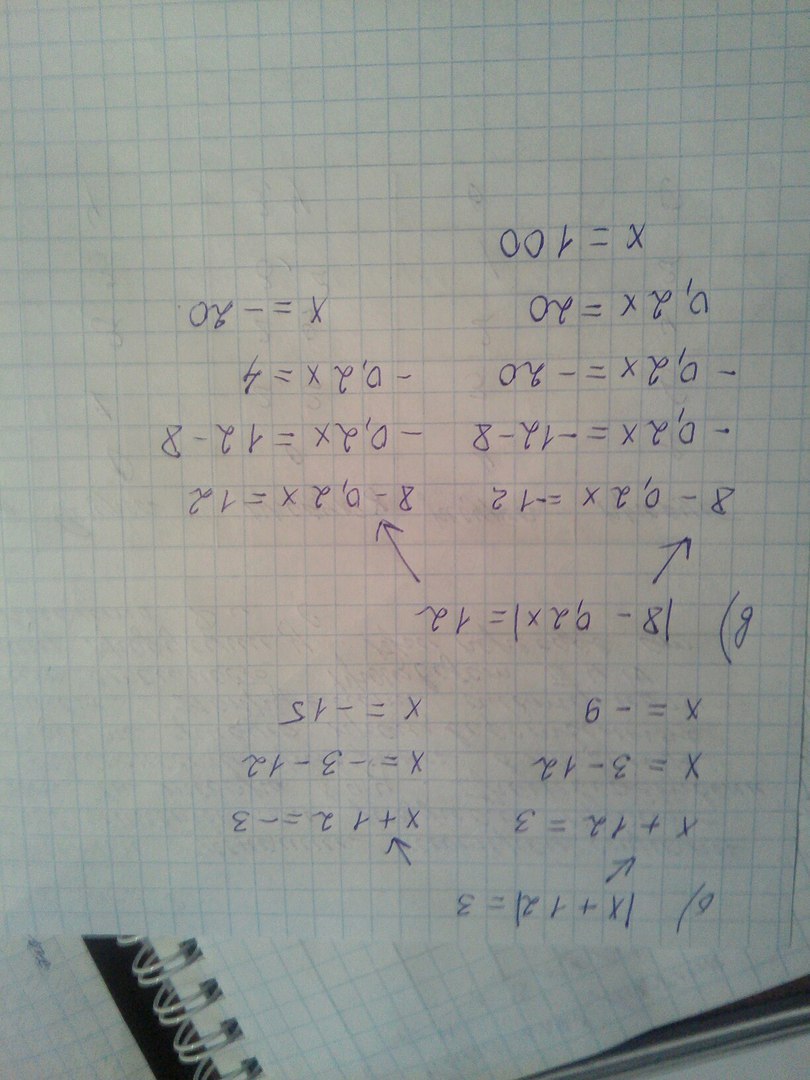 б) |x + 12| = 3
x + 12 = 3 x + 12 = -3
x = 3 - 12 x = -3 - 12
x = -9 x = -15
в) |8 - 0,2x| = 12
8 - 0,2x = -12 8 - 0,2x = 12
- 0,2x = -12 - 8 - 0,2x = 12 - 8
- 0,2x = -20 - 0,2x = 4
0,2x = 20 x = -20
x = 100